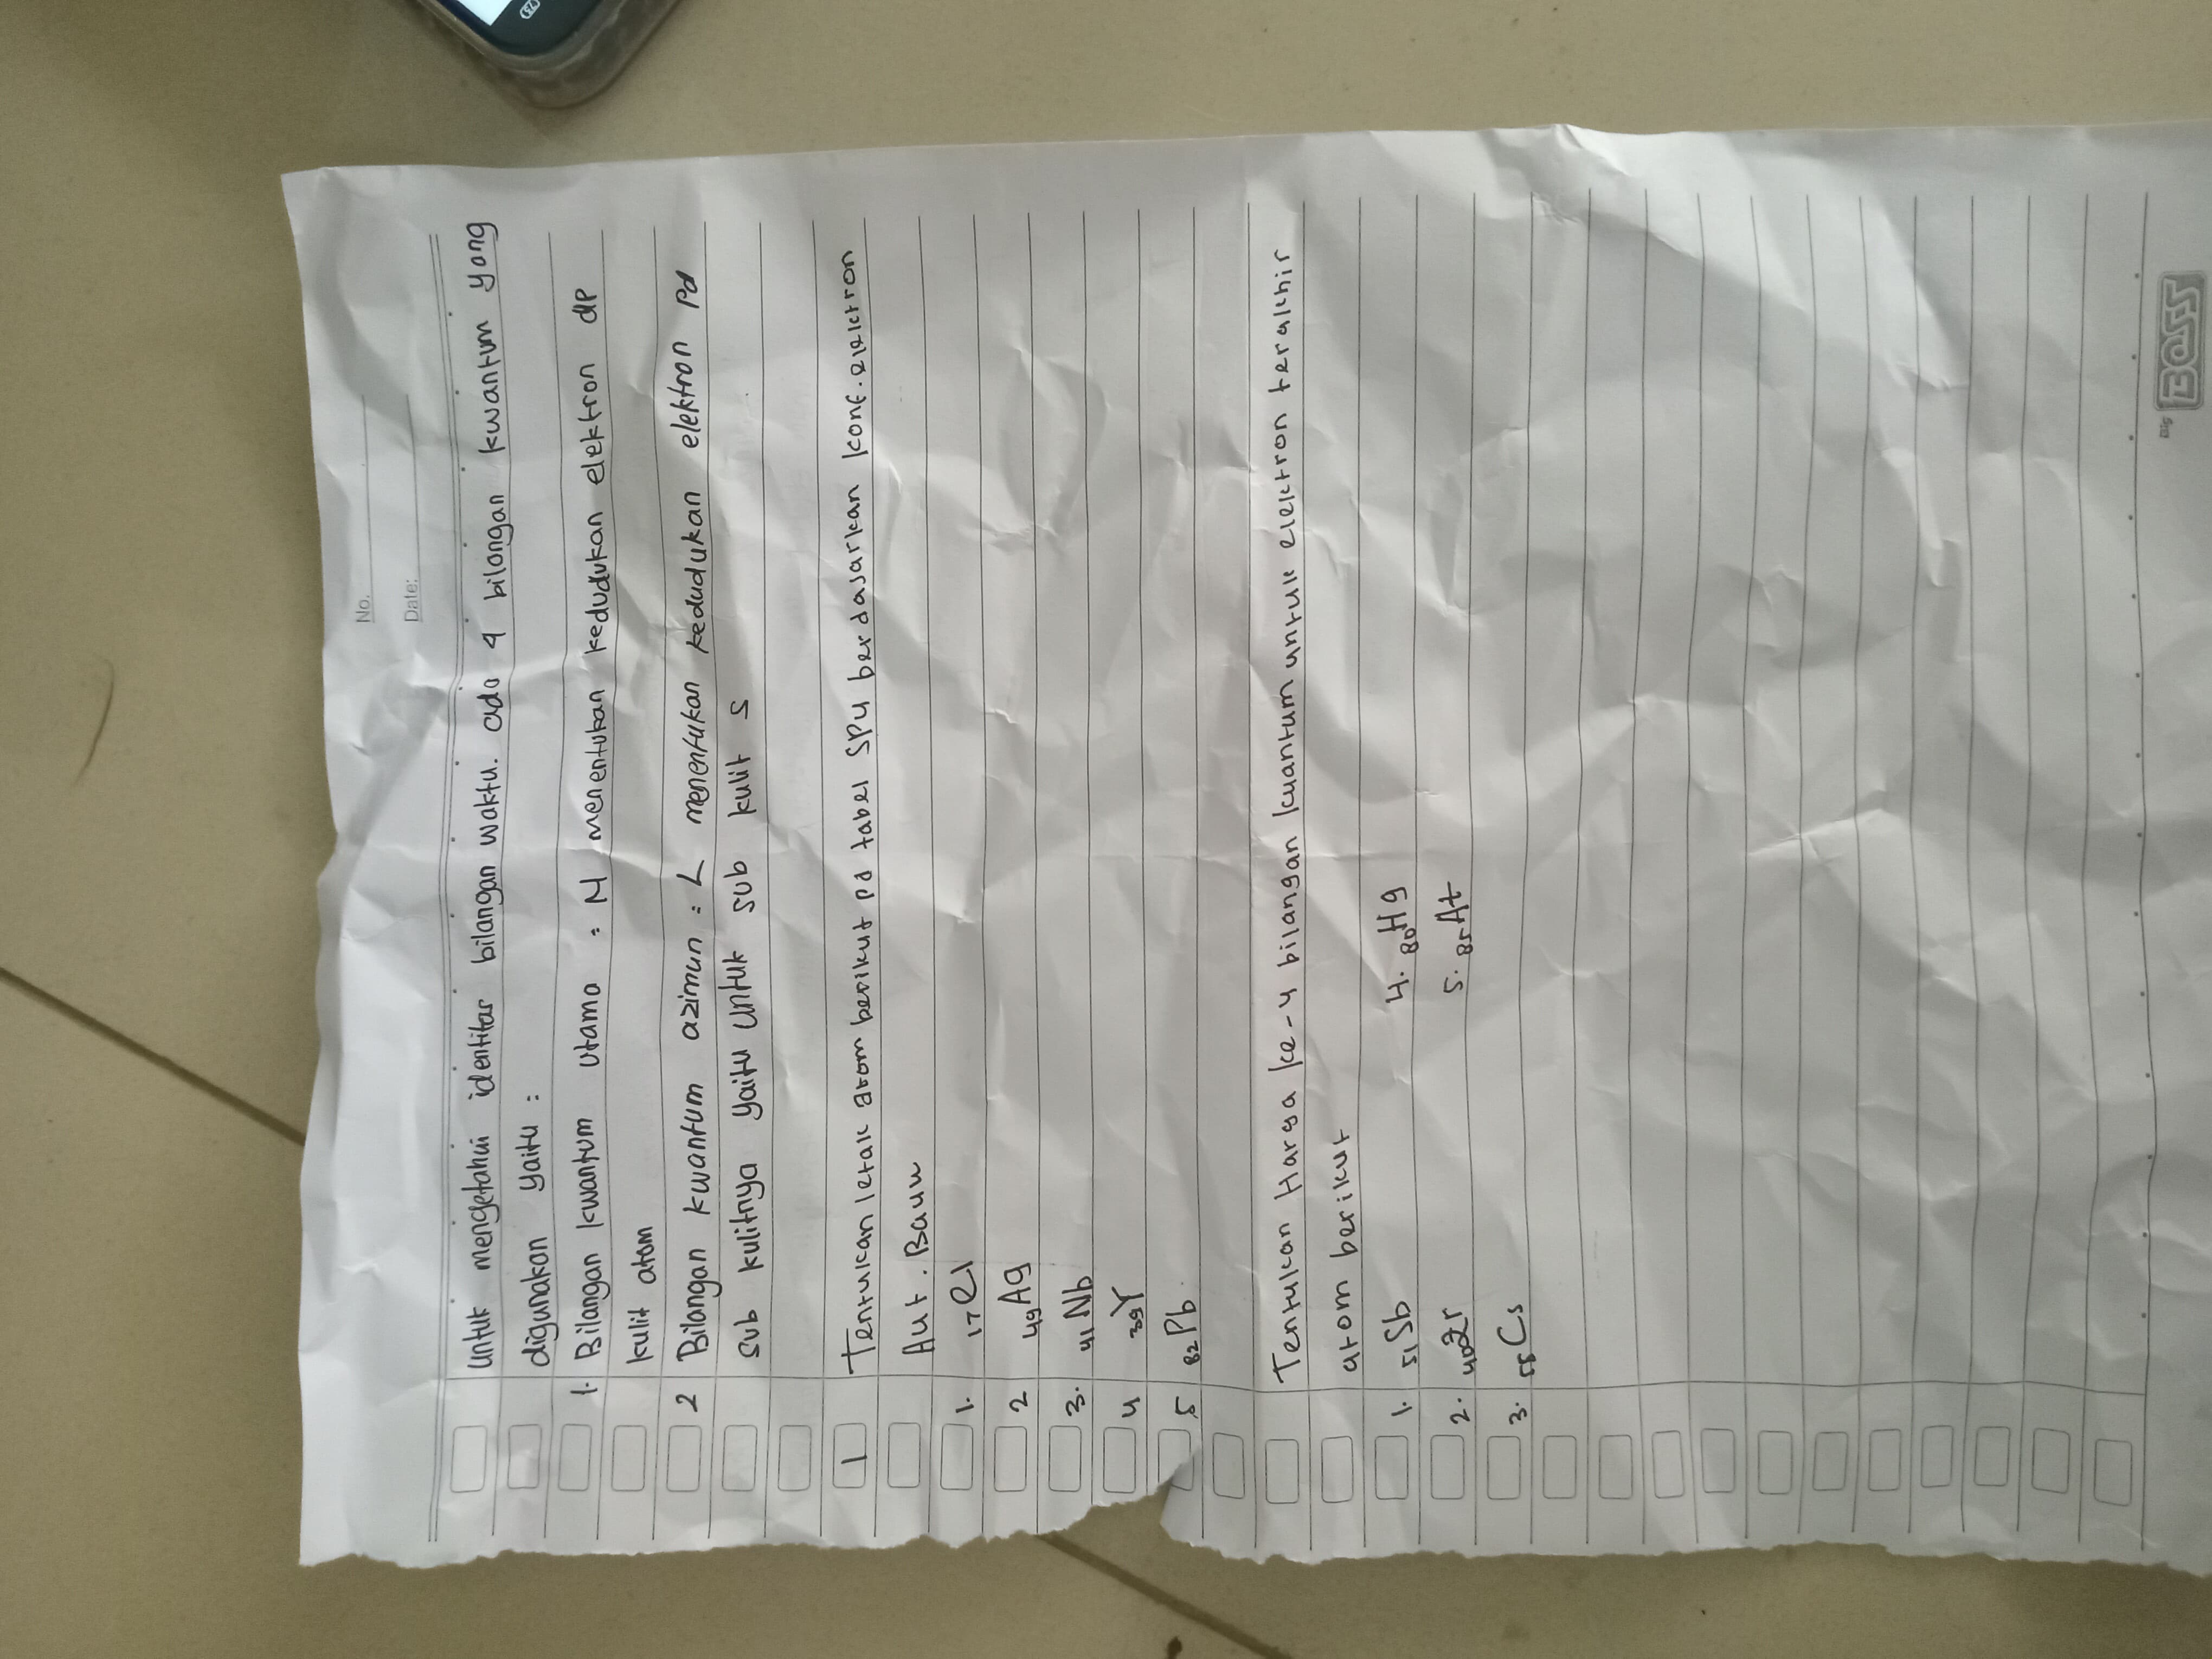 No.
Date:
Untuk mengetahui identitas bilangan waktu. ada 4 bilangan kwantum yang
digunakan yaitu :
1. Bilangan kwantum utama : N menentukan kedudukan elektron dp
kulit atom
2 Bilangan kwantum azimun : L menentukan kedudukan elektron pd
sub kulitnya yaitu untuk sub kulit s
1 Tentukan letak atom berikut pd tabel SPU berdasarkan konf. elektron
Aut. Bauu
1. 17Cl
2 49Ag
3. 41Nb
4 39Y
5 82Pb.
Tentukan Harga ke-4 bilangan kuantum untuk elektron terakhir
atom berikut
1. 51Sb 4. 80Hg
2. 40Zr 5. 85At
3. 55Cs
Big BOSS